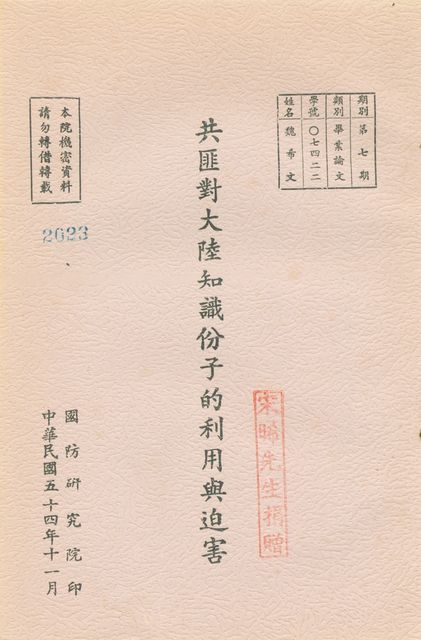 期別 第七期
類別 畢業論文
學號 〇七四二二
姓名 魏希文
共匪對大陸知識份子的利用與迫害
宋晞先生捐贈
本院機密資料
請勿轉借轉載
2023
國防研究院印
中華民國五十四年十一月